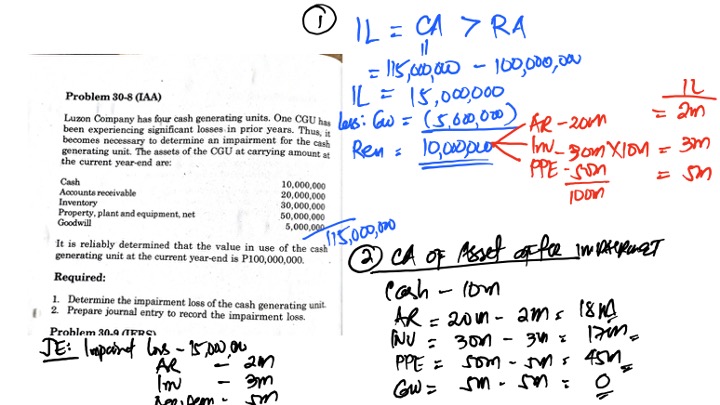 Problem 30-8 (IAA)
Luzon Company has four cash generating units. One CGU has
been experiencing significant losses in prior years. Thus, it
becomes necessary to determine an impairment for the cash
generating unit. The assets of the CGU at carrying amount at
the current year-end are:
Cash 10,000,000
Accounts receivable 20,000,000
Inventory 30,000,000
Property, plant and equipment, net 50,000,000
Goodwill 5,000,000
115,000,000
It is reliably determined that the value in use of the cash
generating unit at the current year-end is P100,000,000.
Required:
1. Determine the impairment loss of the cash generating unit.
2. Prepare journal entry to record the impairment loss.
Problem 30-9 (IFRS)
JE: Impairment loss - 15,000,000
AR - 2m
Inv - 3m
5m
1 IL = CA > RA
= 115,000,000 - 100,000,000
IL = 15,000,000
less: GW = (5,000,000)
Rem = 10,000,000
IL
AR - 20m = 2m
Inv - 30m X 10m = 3m
PPE - 50m = 5m
100m
2 CA of Asset after IMPAIRMENT
Cash - 10m
AR = 20m - 2m = 18M
INV = 30m - 3m = 27m
PPE = 50m - 5m = 45m
GW = 5m - 5m = 0